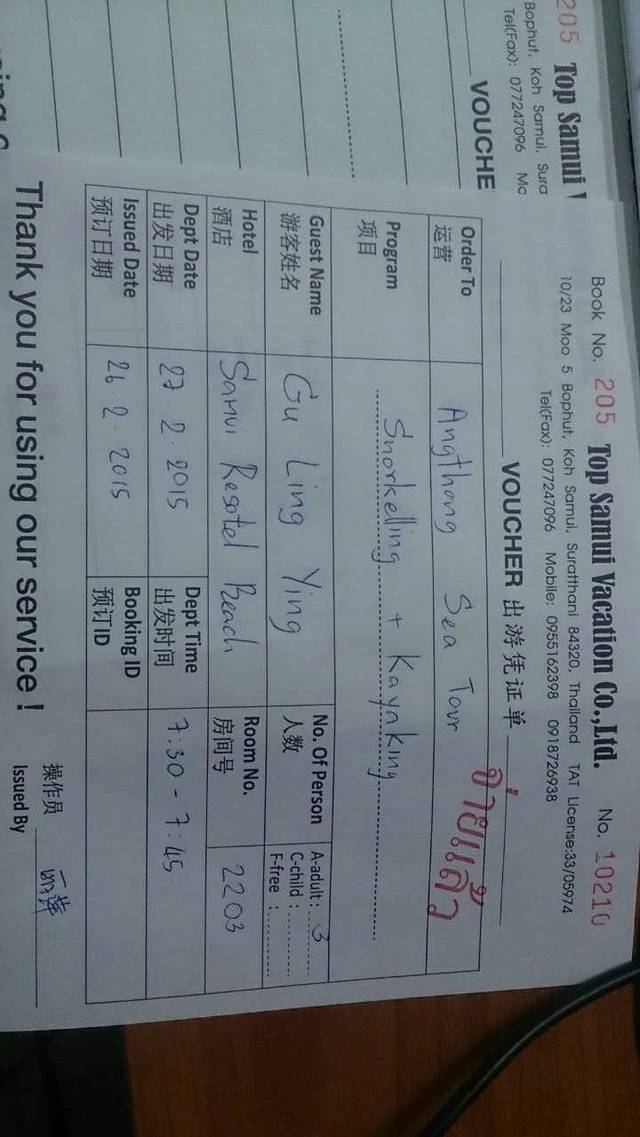 205 Top Samui V
Bophut, Koh Samui, Sura
Tel(Fax): 077247096 Mo
VOUCHE
Book No. 205 Top Samui Vacation Co.,Ltd. No. 10210
10/23 Moo 5 Bophut, Koh Samui, Suratthani 84320, Thailand TAT License:33/05974
Tel(Fax): 077247096 Mobile: 0955162398 0918726938
VOUCHER 出游凭证单
จ่ายแล้ว
Order To Angthong Sea Tour
运营
Program Snorkelling + Kayaking
项目
Guest Name Gu Ling Ying No. Of Person A-adult : 3
游客姓名 人数 C-child :
F-free :
Hotel Samui Resotel Beach Room No. 2203
酒店 房间号
Dept Date 27.2.2015 Dept Time 7:30 - 7:45
出发日期 出发时间
Issued Date 26.2.2015 Booking ID
预订日期 预订ID
Thank you for using our service !
操作员
Issued By